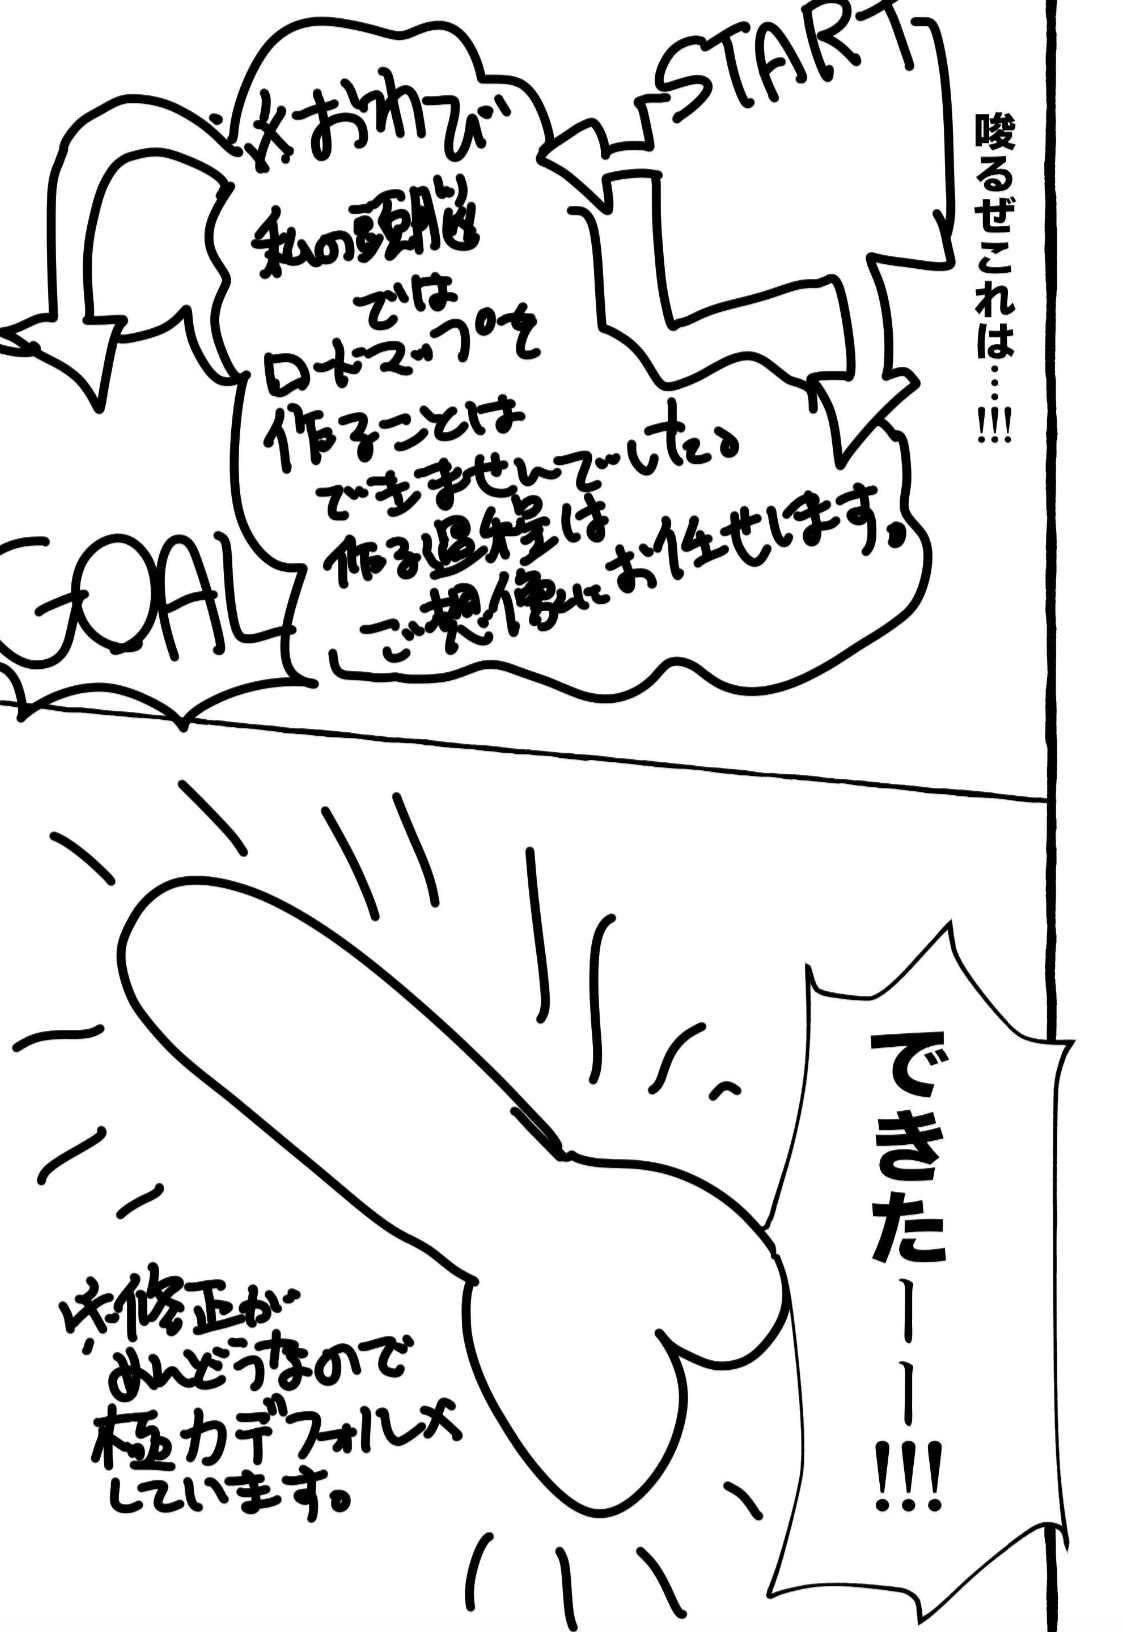 唆るぜこれは…!!!
START
※おわび
私の頭脳
では
ロードマップを
作ることは
できませんでした。
作る過程は
ご想像にお任せします。
GOAL
できたーー!!!
※修正が
めんどうなので
極力デフォルメ
しています。